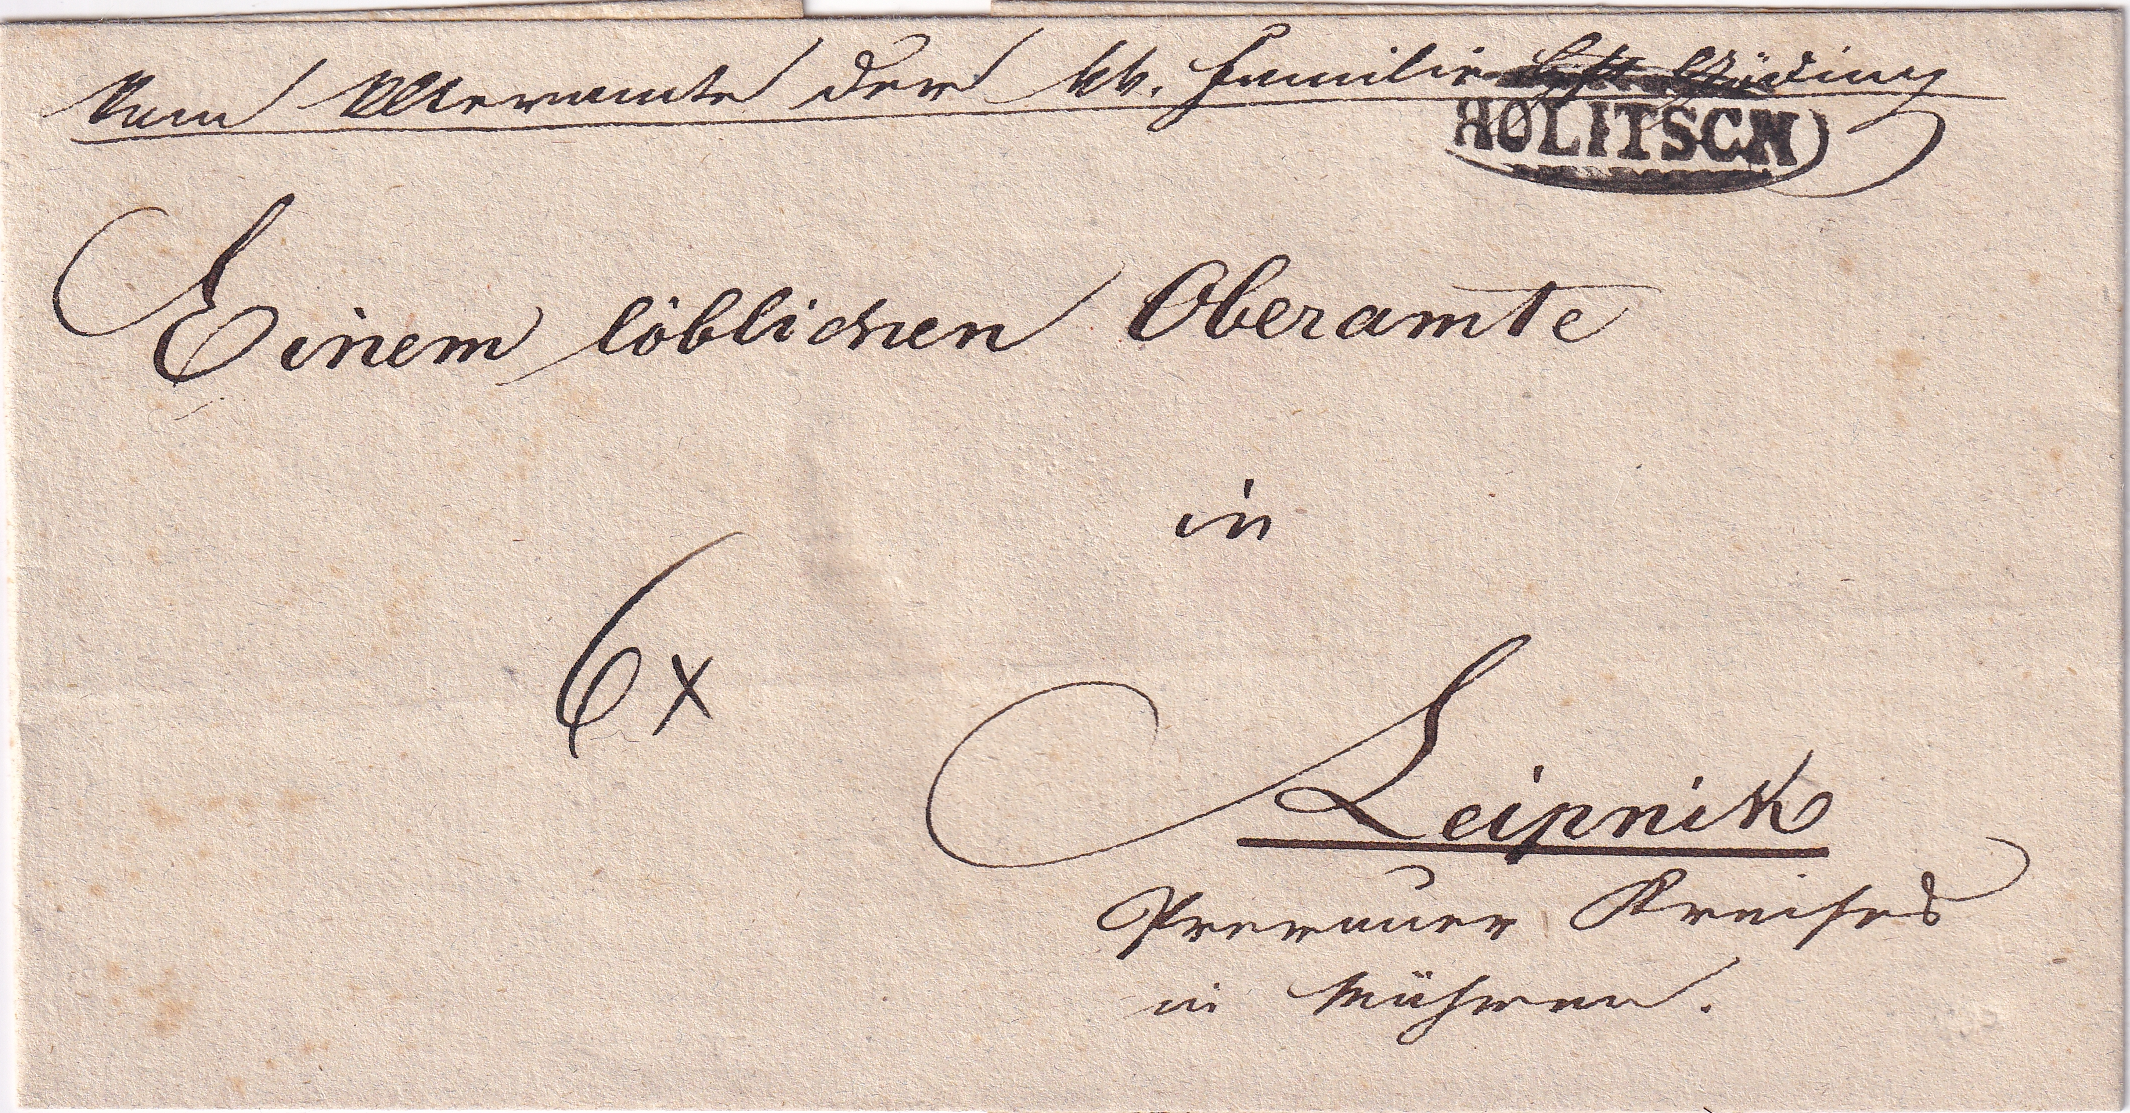 Vom Oberamte der kk. Familien Hft Göding
HOLITSCH
Einem löblichen Oberamte
in
6x
Leipnik
Prerauer Kreises
in Mähren.